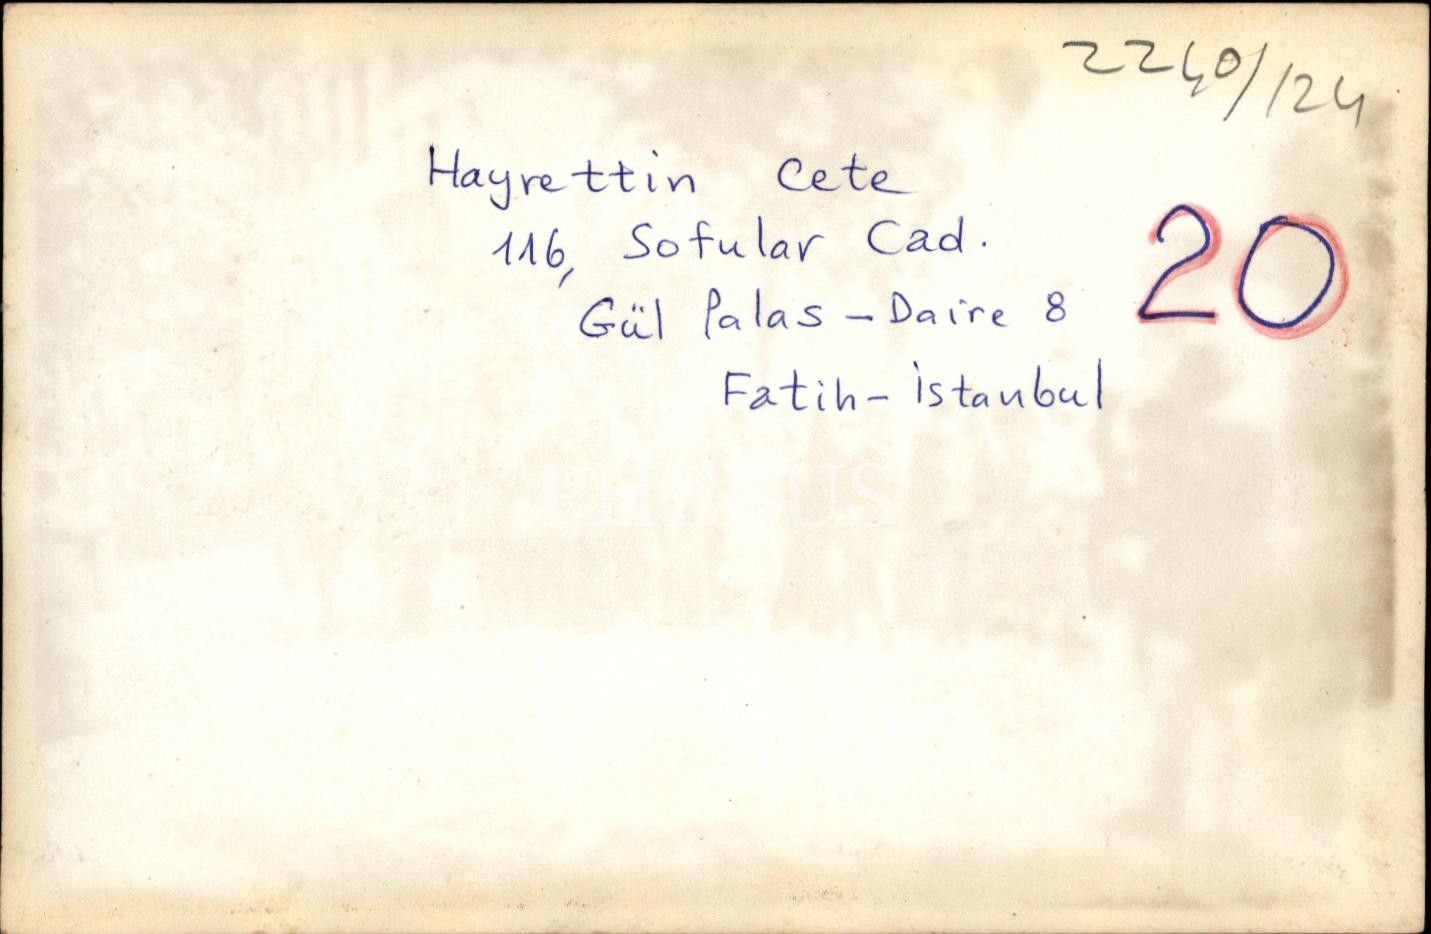 2240/124
Hayrettin Cete
116, Sofular Cad.
20
Gül Palas - Daire 8
Fatih - İstanbul
PHEBUS